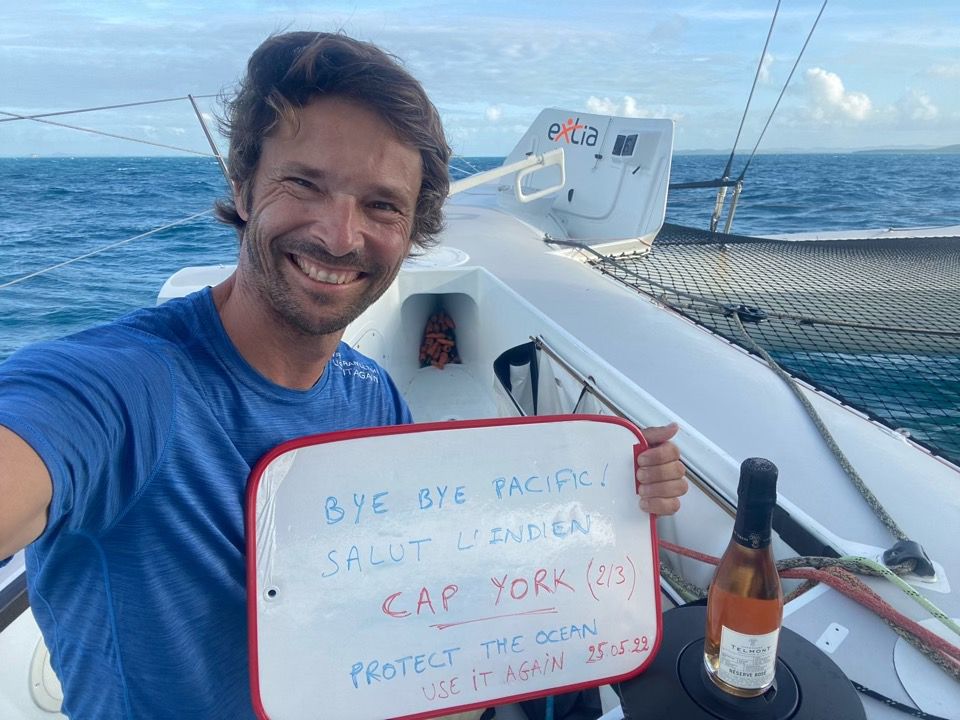 extia
IT AGAIN
BYE BYE PACIFIC!
SALUT L'INDIEN
CAP YORK (2/3)
PROTECT THE OCEAN
USE iT AGAiN 25.05.22
TELMONT
RÉSERVE ROSÉ